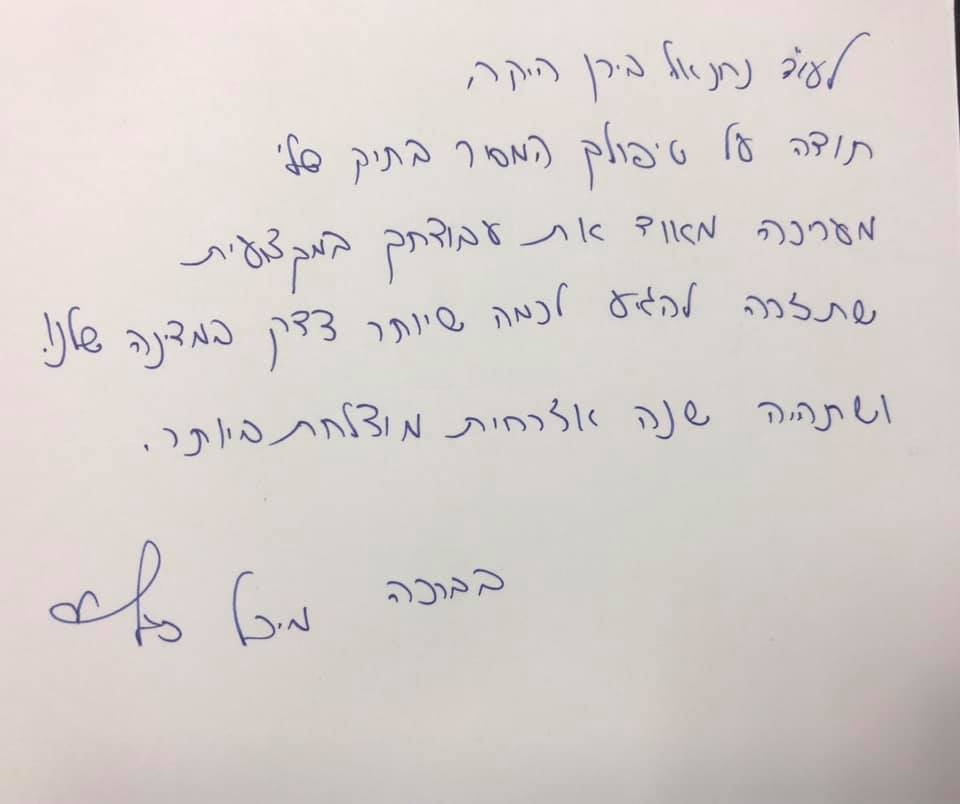 לעו"ד נתנאל בירן היקר,
תודה על טיפולך המסור בתיק שלי
מעריכה מאוד את עבודתך המקצועית
שתזכה להגיע לכמה שיותר צדק במדינה שלנו!
ושתהיה שנה אזרחית מוצלחת ביותר.
בברכה מיכל